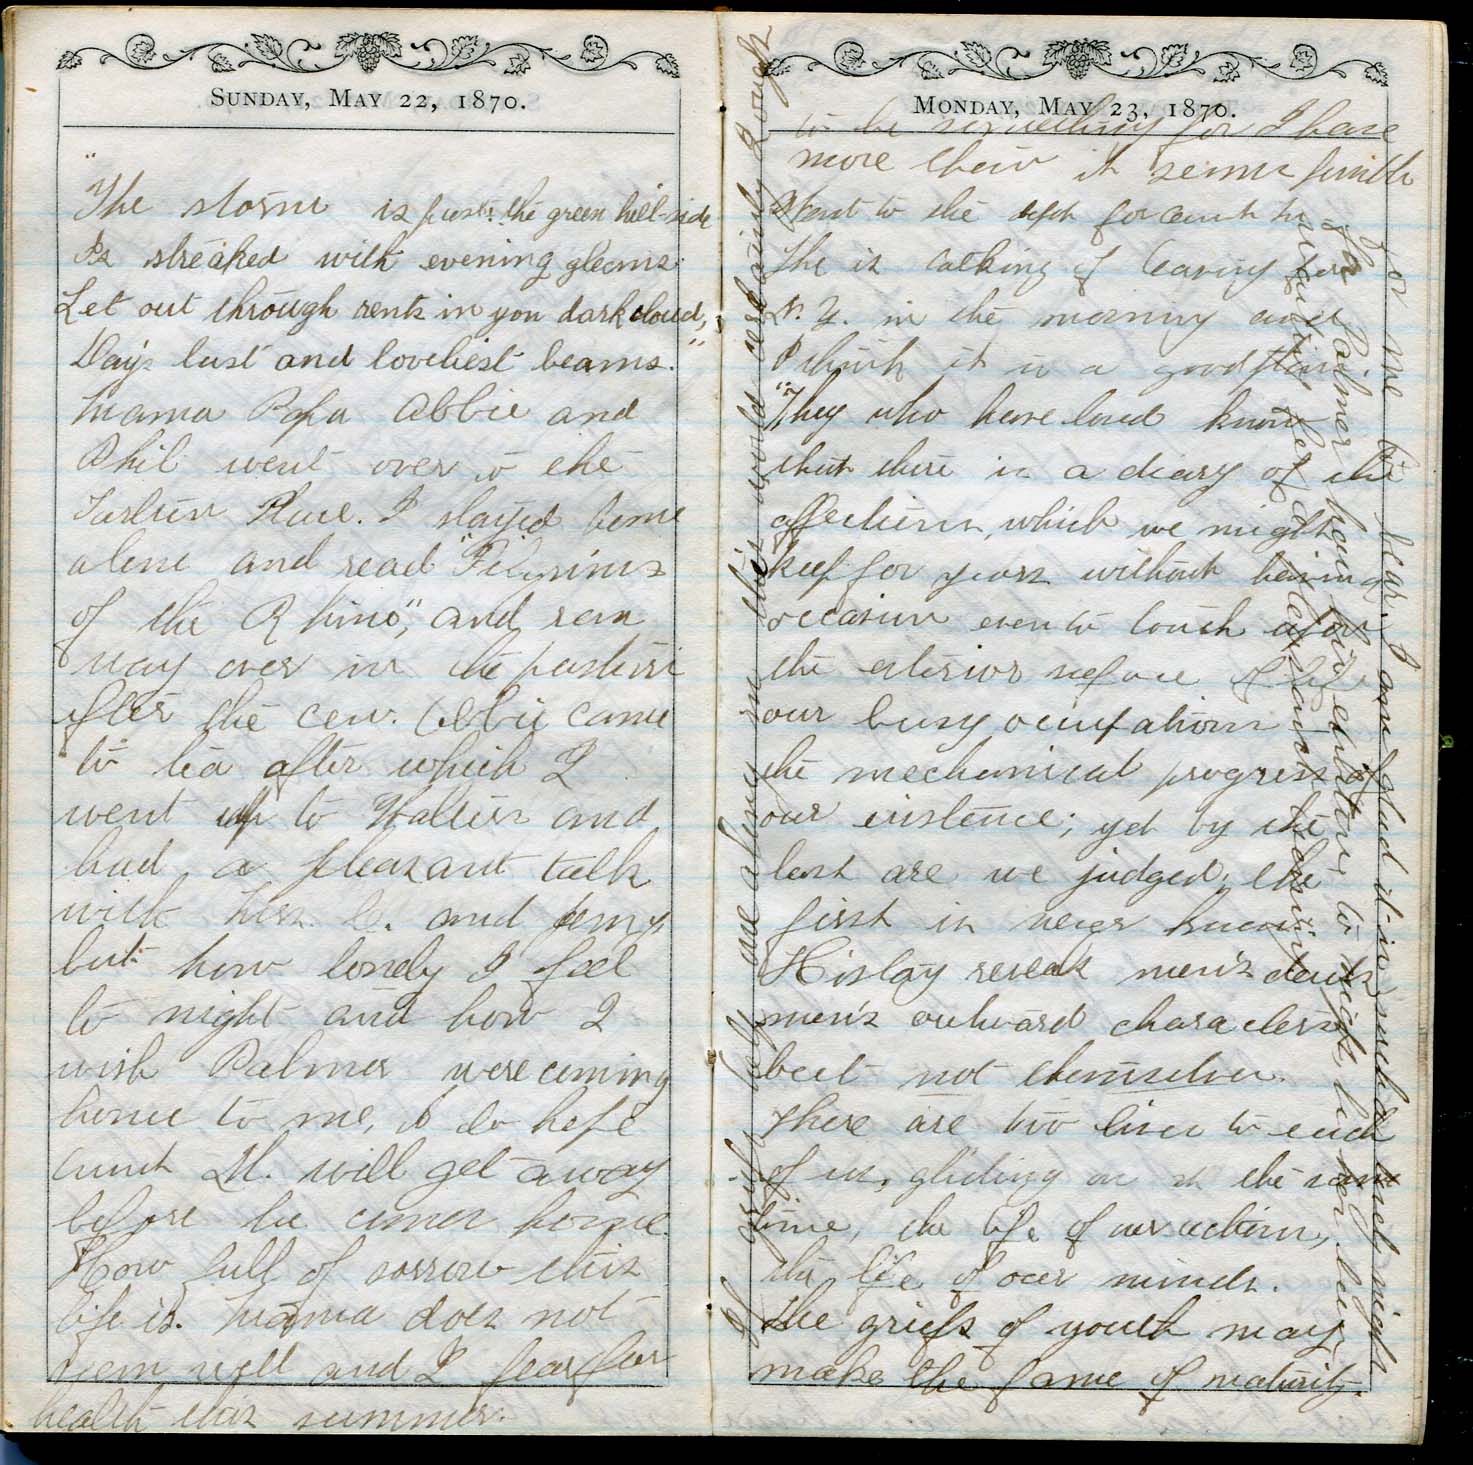 SUNDAY, MAY 22, 1870.
"The storm is past: the green hill-side
Is streaked with evening gleams:
Let out through rents in yon dark cloud,
Day's last and loveliest beams."
Mama Papa Abbie and
Phil went over to the
Place. I stayed home
alone and read "Pilgrims
of the Rhine," and ran
way over in the pasture
after the cow. Abbie came
to tea after which I
went up to Walters and
had a pleasant talk
with and
but how lonely I feel
to night and how I
wish Palmer were coming
home to me, I do hope
aunt M. will get away
before he comes home.
How full of sorrow this
life is. Mama does not
seem well and I fear for
health this summer.
MONDAY, MAY 23, 1870.
to be something for I have
more than it seems possible
Went to the depot for aunt M
She is talking of leaving for
N. Y. in the morning and
I think it is a good thing.
"They who have loved know
that there is a diary of the
affections, which we might
keep for years without having
occasion even to touch upon
the exterior surface of life
our busy occupations
the mechanical progress of
our existence; yet by the
last are we judged, the
first is never known
History reveals men's deeds
men's outward characters
but not themselves.
There are two lives to each
of us, gliding on at the same
time, the life of our actions,
the life of our minds.
The griefs of youth may
make the fame of maturity.
for me to bear. I am glad it is ended and night
for Palmer
one alone in this world certainly ought